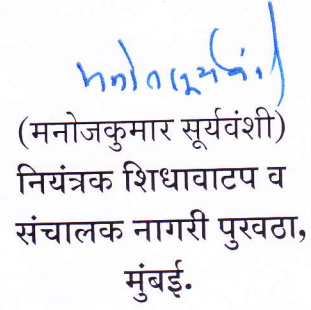 (मनोजकुमार सूर्यवंशी)
नियंत्रक शिधावाटप व
संचालक नागरी पुरवठा,
मुंबई.